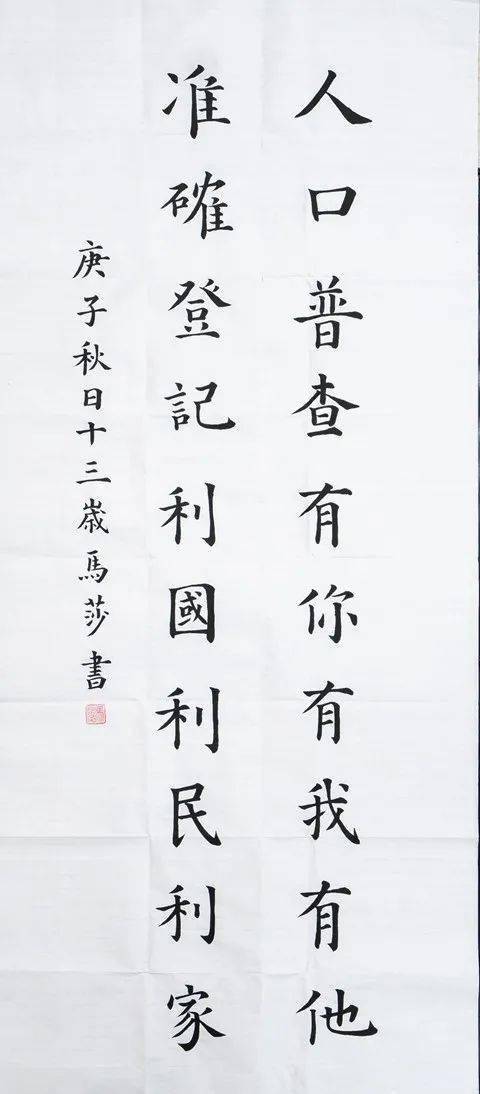 人口普查有你有我有他
准確登記利國利民利家
庚子秋日十三歲馬莎書